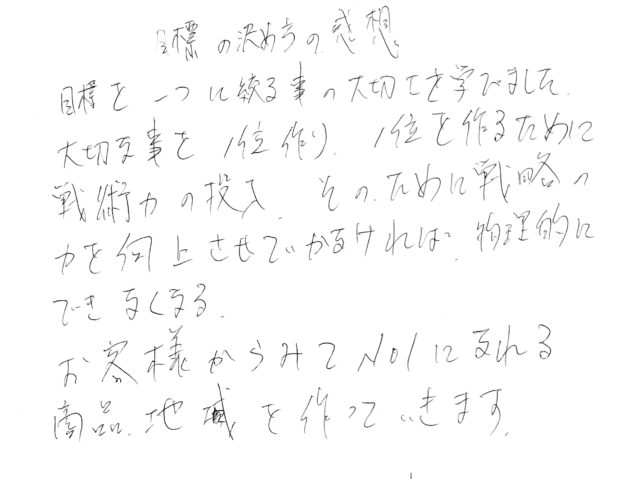 目標の決め方の感想
目標を一つに絞る事の大切さを学びました.
大切な事を1位作り. 1位を作るために
戦術力の投入. その.ために戦略の
力を向上させていかなければ.物理的に
できなくなる.
お客様からみてNO1になれる
商品.地域を作っていきます.